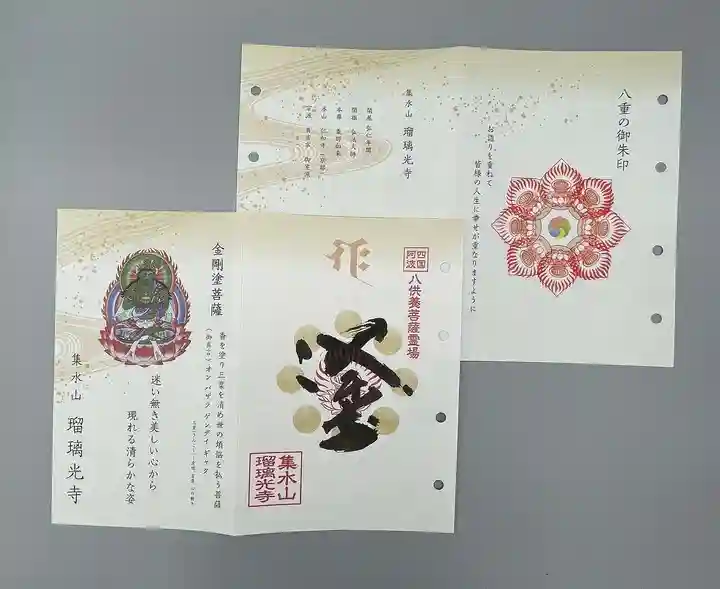 八重の御朱印
お詣りを重ねて
皆様の人生に幸せが重なりますように
集水山 瑠璃光寺
開基 弘仁年間
開祖 弘法大師
本尊 薬師如来
本山 仁和寺(京都)
四国
阿波
八供養菩薩霊場
塗
集水山
瑠璃光寺
金剛塗菩薩
香を塗り三業を清め世の煩悩を払う菩薩
(御真言)オン バザラ ゲンデイ ギャク
迷い無き美しい心から
現れる清らかな姿
集水山 瑠璃光寺